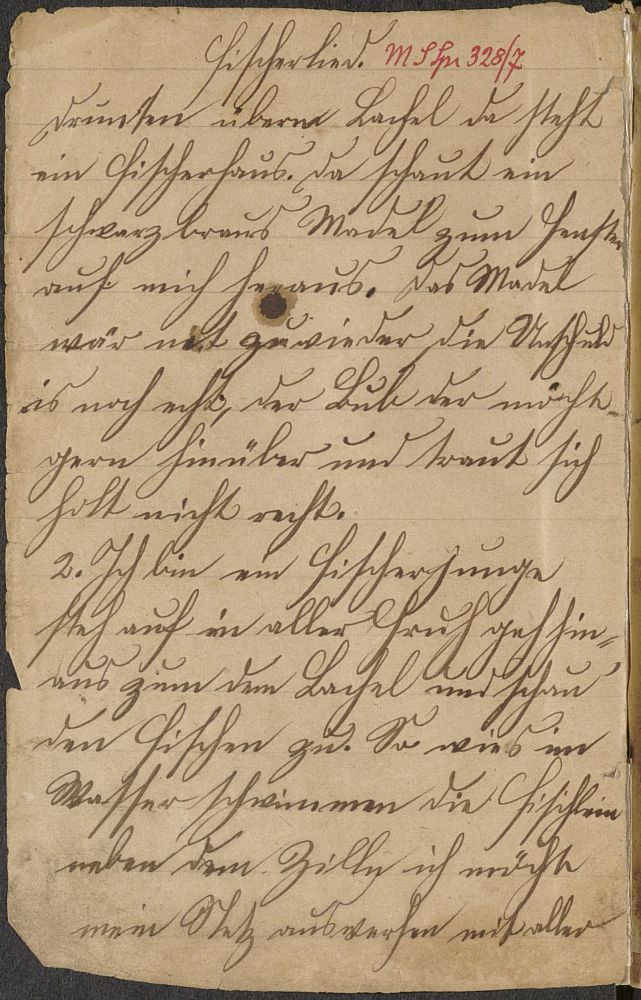 Fischerlied. MS Hs 328/7
Drunten überm Bachel da steht
ein Fischerhaus. Da schaut ein
schwarzbrauns Madel zum Fenster
auf mich heraus. Das Madel
wär net zuwieder die Unschuld
is noch echt, der Bub der möcht
gern hinüber und traut sich
holt nicht recht.
2. Ich bin ein Fischerjunge
steh auf in aller Fruh geh hin=
aus zum dem Bachel und schau
den Fischen zu. So wies im
Wasser schwimmen die Fischlein
neben dem Zilln ich möcht
mein Netz auswerfen mit aller